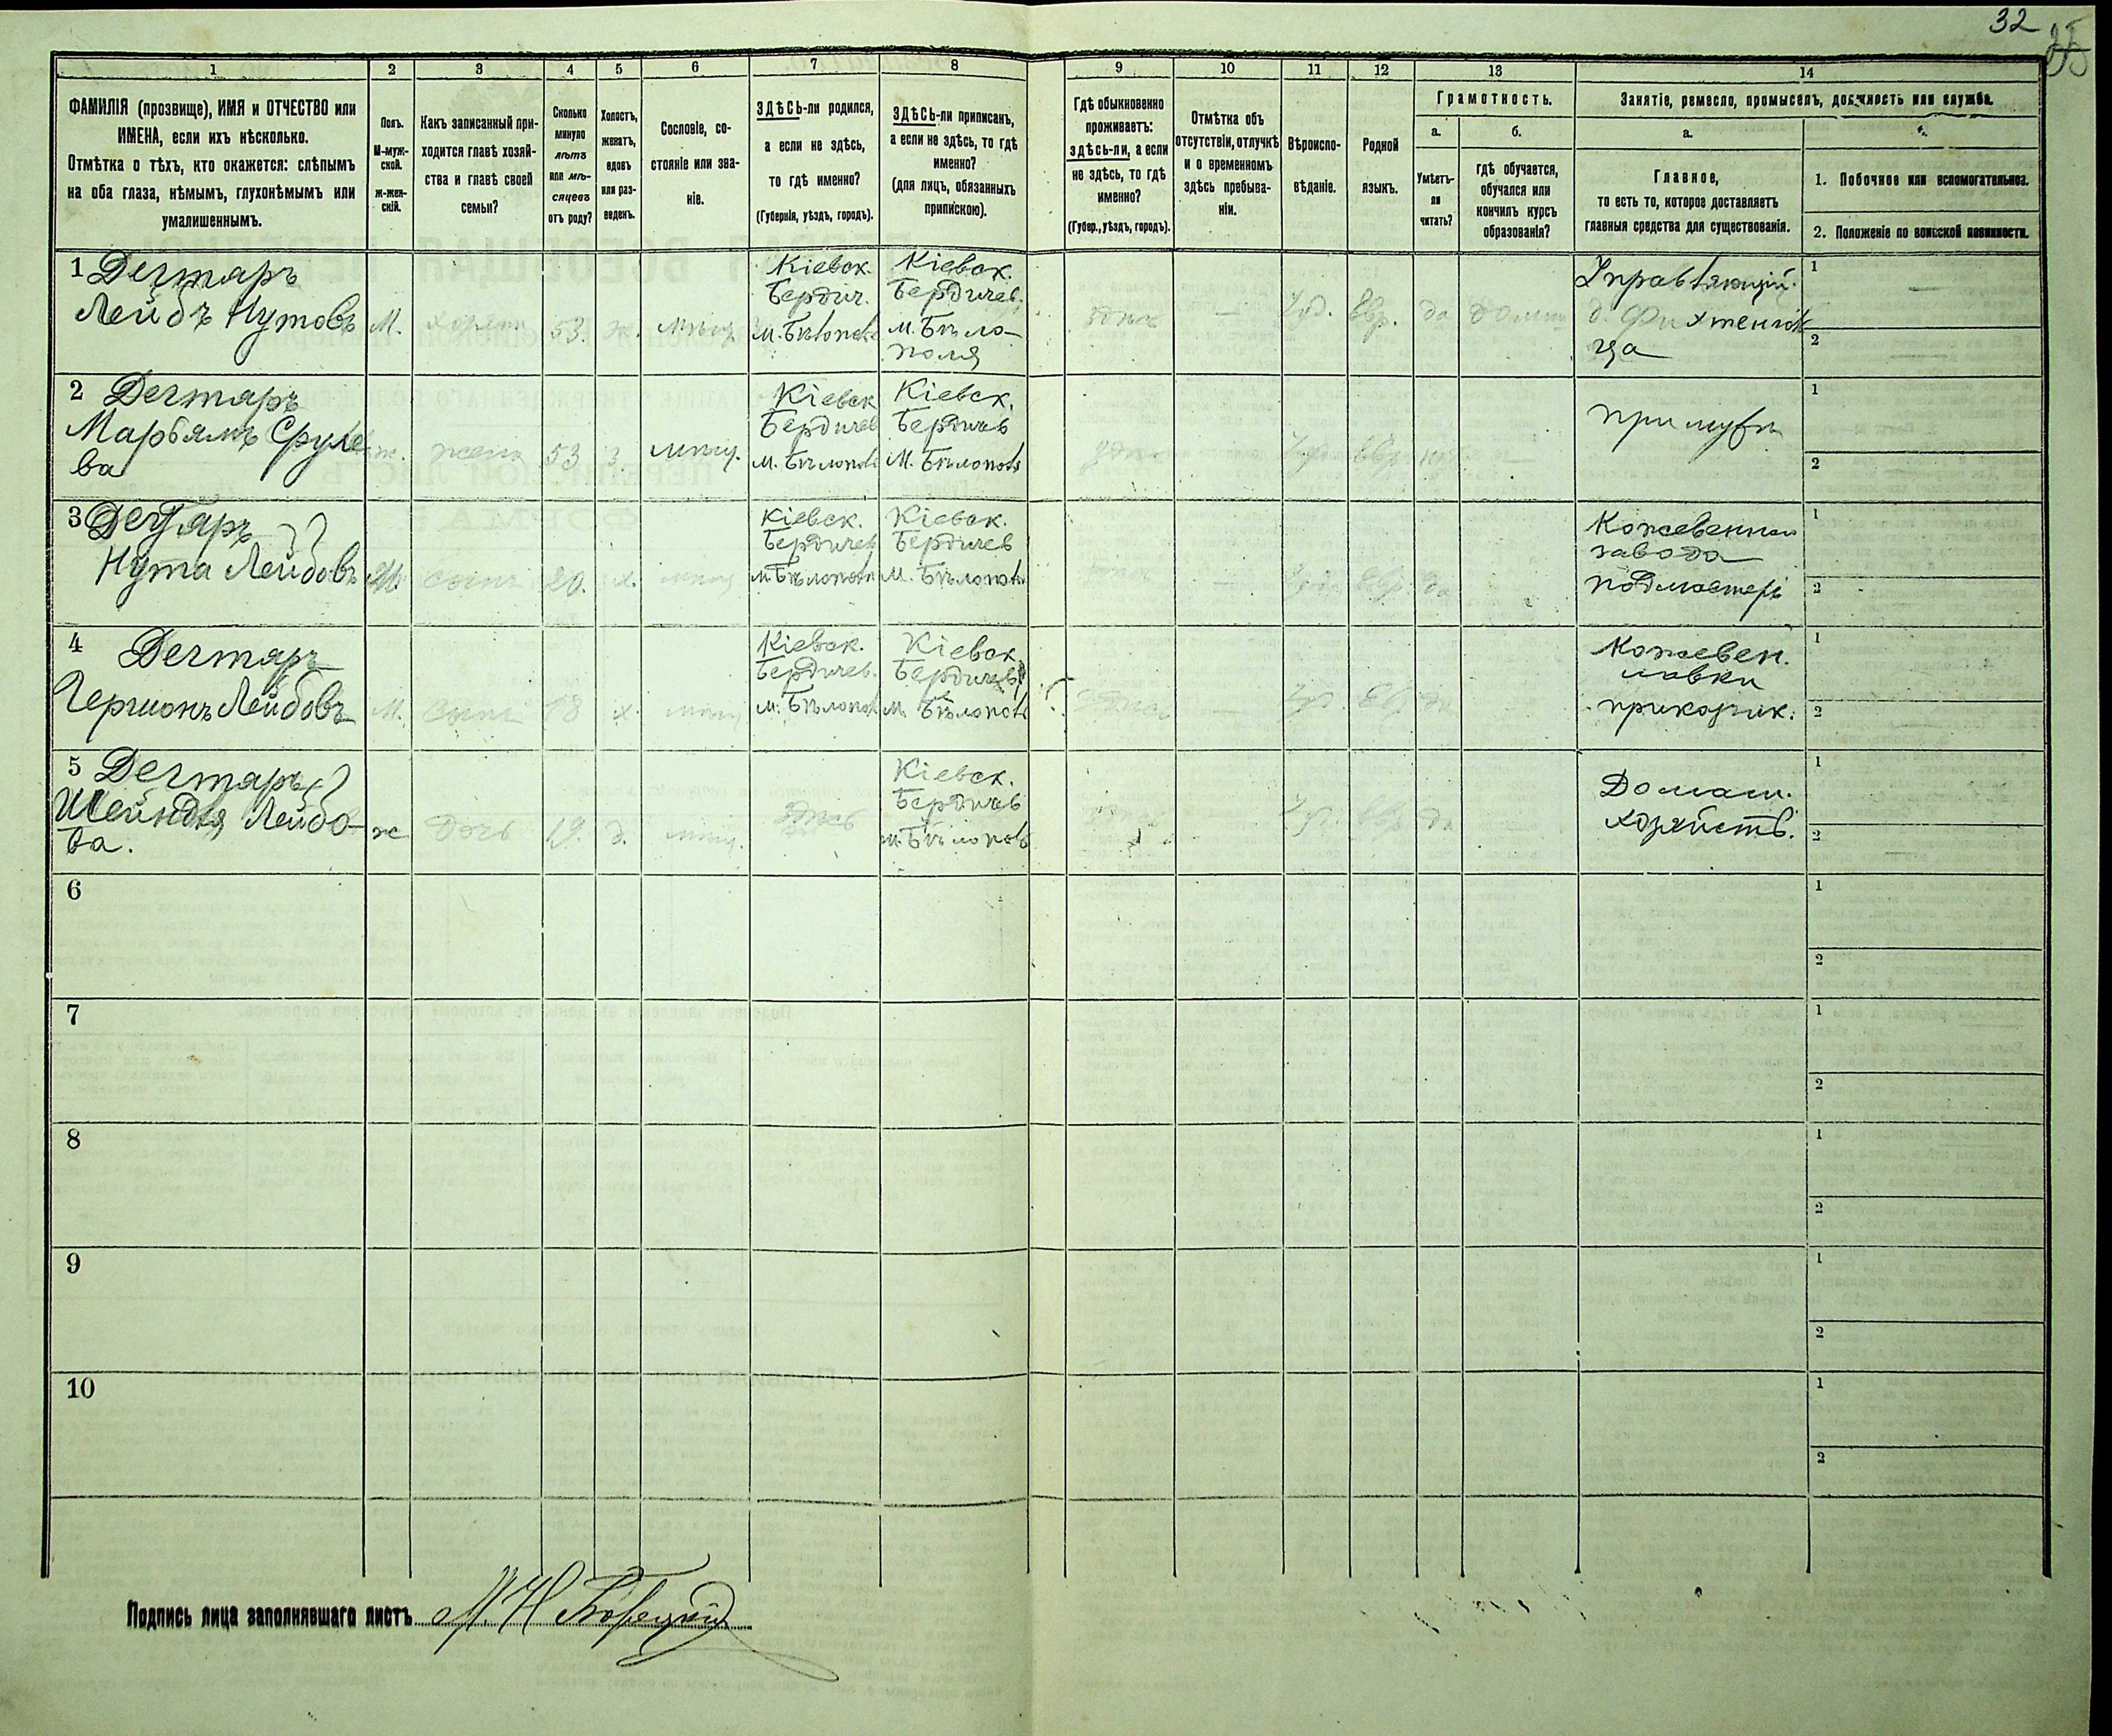 32
1 2 3 4 5 6 7 8 9 10 11 12 13 14
ФАМИЛІЯ (прозвище), ИМЯ и ОТЧЕСТВО или
ИМЕНА, если ихъ нѣсколько.
Отмѣтка о тѣхъ, кто окажется: слѣпымъ
на оба глаза, нѣмымъ, глухонѣмымъ или
умалишеннымъ.
Полъ.
М-муж-
ской.
ж-жен-
скій.
Какъ записанный при-
ходится главѣ хозяй-
ства и главѣ своей
семьи?
Сколько
минуло
лѣтъ
или мѣ-
сяцевъ
отъ роду?
Холостъ,
женатъ,
вдовъ
или раз-
веденъ.
Сословіе, со-
стояніе или зва-
ніе.
ЗДѢСЬ-ли родился,
а если не здѣсь,
то гдѣ именно?
(Губернія, уѣздъ, городъ).
ЗДѢСЬ-ли приписанъ,
а если не здѣсь, то гдѣ
именно?
(для лицъ, обязанныхъ
припискою).
Гдѣ обыкновенно
проживаетъ:
здѣсь-ли, а если
не здѣсь, то гдѣ
именно?
(Губер., уѣздъ, городъ).
Отмѣтка объ
отсутствіи, отлучкѣ
и о временномъ
здѣсь пребыва-
ніи.
Вѣроиспо-
вѣданіе.
Родной
языкъ.
Грамотность.
а.
Умѣетъ-
ли
читать?
б.
гдѣ обучается,
обучался или
кончилъ курсъ
образованія?
Занятіе, ремесло, промыселъ, должность или служба.
а.
Главное,
то есть то, которое доставляетъ
главныя средства для существованія.
1. Побочное или вспомогательное.
2. Положеніе по воинской повинности.
1 Дегтяръ
Лейбъ Нутовъ
М.
хозяин
53.
ж.
мѣщ
Кіевск.
Бердич.
м. Бѣлополь
Кіевск.
Бердичев.
м. Бѣло-
поля
здѣсь
—
Іуд.
Евр.
да
дома
Управляющій
д. Фихтенголь
ца
1 —
2 —
2 Дегтяръ
Марьямъ Срулe
ва
ж.
жена
53
з.
мѣщ.
Кіевск
Бердичев
м. Бѣлополь
Кіевск.
Бердичев
М. Бѣлополь
здѣсь
Іуд
Евр
—
При мужѣ
1
2
3 Дегтяръ
Нута Лейбовъ
М.
сынъ
20.
х.
мѣщ
Кіевск.
Бердичев
м. Бѣлополь
Кіевск.
Бердичев
М. Бѣлополь
—
Іуд
Евр
да
Кожевенная
завода
подмастерь
1
2
4 Дегтяръ
Гершонъ Лейбовъ
М.
сынъ
18
х.
мѣщ
Кіевск.
Бердичев.
м. Бѣлополь
Кіевск
Бердичев
м. Бѣлополь
здѣсь
—
Іуд.
Евр
да
Кожевен.
лавки
прикащик.
1
2
5 Дегтяръ
Шейндля Лейбо-
ва.
ж
дочь
19.
д.
мѣщ.
здѣсь
Кіевск.
Бердичев
м. Бѣлополь
Іуд.
Евр
да
Домаш.
хозяйств.
1
2 —
6
1
2
7
1
2
8
1
2
9
1
2
10
1
2
Подпись лица заполнявшаго листъ